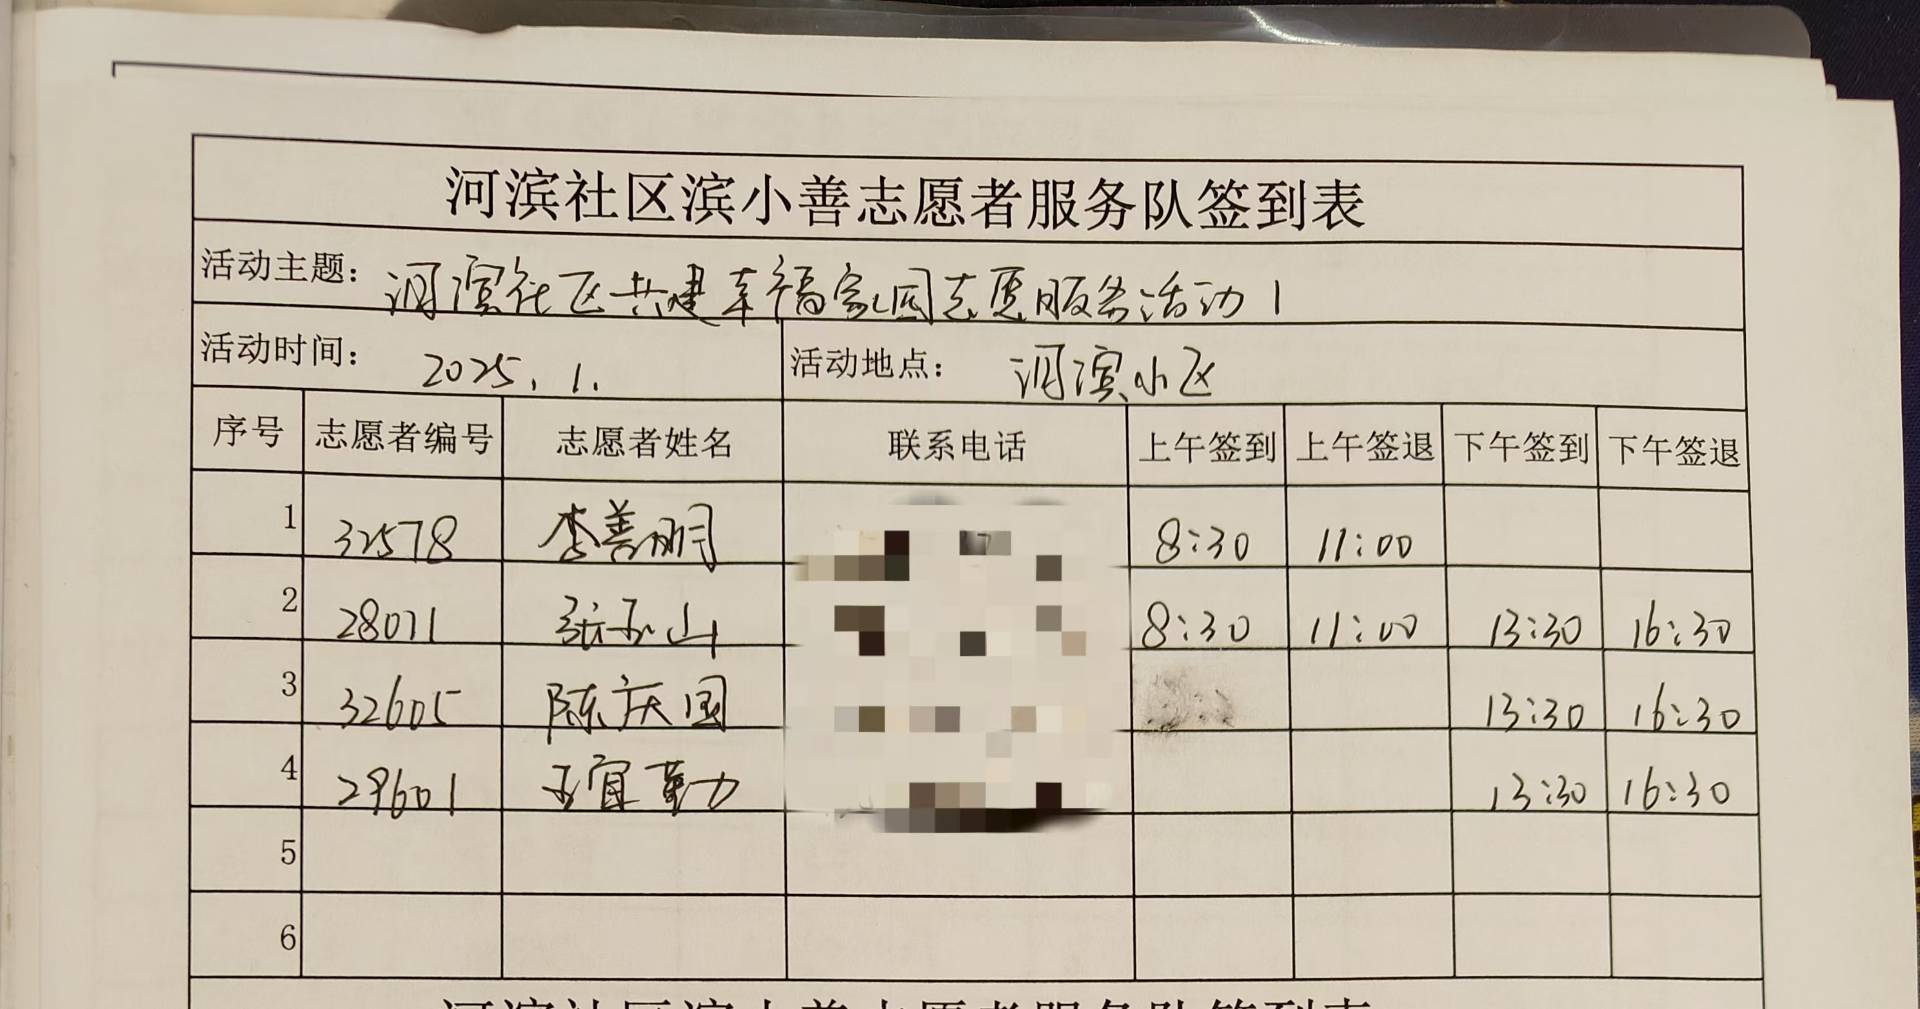 河滨社区滨小善志愿者服务队签到表
活动主题： 河滨社区共建幸福家园志愿服务活动1
活动时间： 2025.1. 活动地点： 河滨小区
序号 志愿者编号 志愿者姓名 联系电话 上午签到 上午签退 下午签到 下午签退
1 32578 李善明 8:30 11:00
2 28071 张玉山 8:30 11:00 13:30 16:30
3 32605 陈庆国 13:30 16:30
4 29601 王宜勤 13:30 16:30
5
6
河滨社区滨小善志愿者服务队签到表